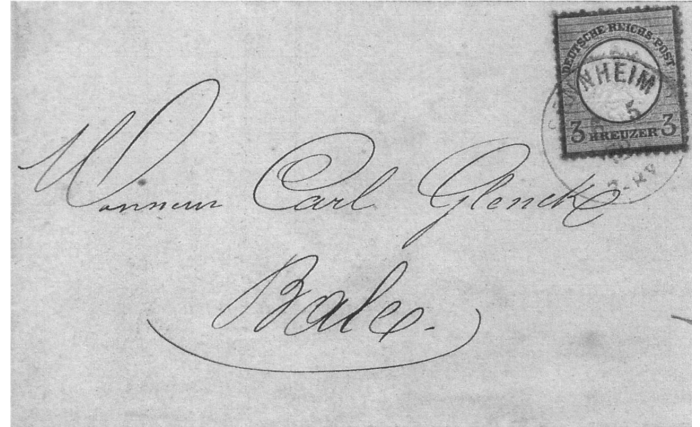 DEUTSCHE REICHS-POST
NHEIM
5
3 KREUZER 3
Monsieur Carl Glenck
Bale.